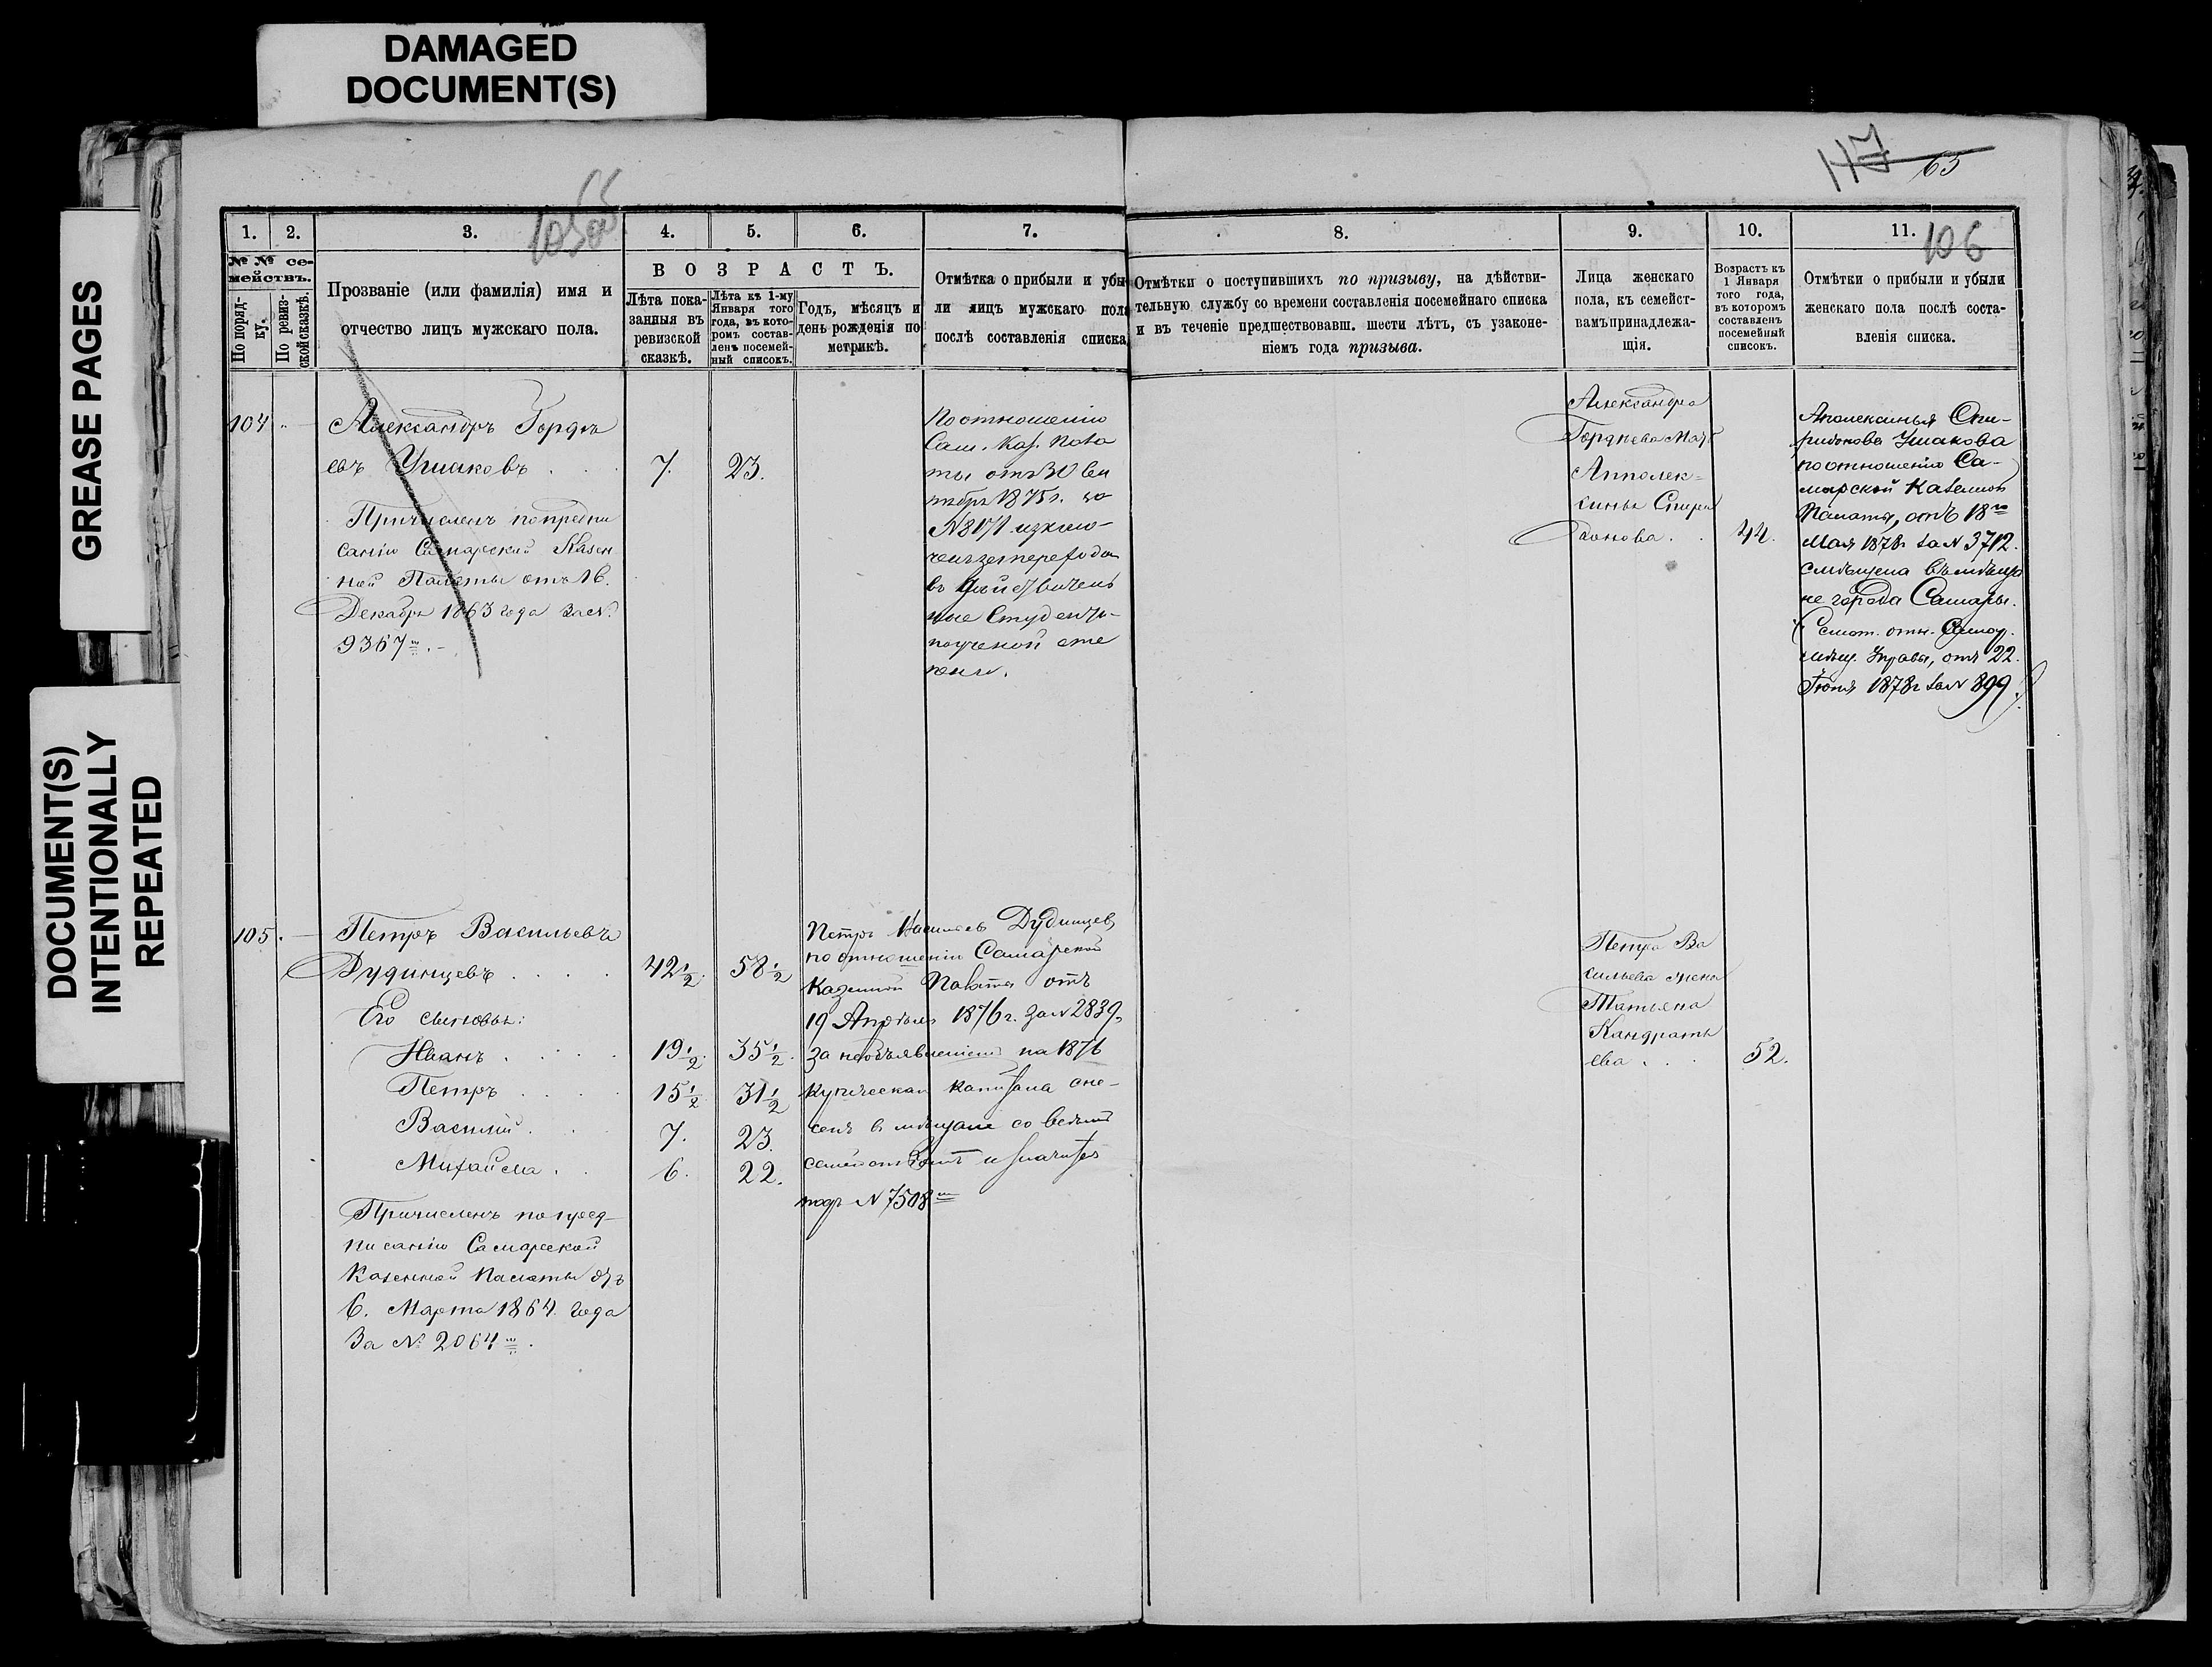 DAMAGED
DOCUMENT(S)
GREASE PAGES
DOCUMENT(S)
INTENTIONALLY
REPEATED
117 63
106
1. 2. 3. 4. 5. 6. 7. 8. 9. 10. 11.
№ № се-
мействъ.
По поряд-
ку.
По ревиз-
ской сказкѣ.
Прозваніе (или фамилія) имя и
отчество лицъ мужскаго пола.
ВОЗРАСТЪ.
Лѣта пока-
занныя въ
ревизской
сказкѣ.
Лѣта къ 1-му
Января того
года, въ кото-
ромъ состав-
ленъ посемей-
ный списокъ.
Годъ, мѣсяцъ и
день рожденія по
метрикѣ.
Отмѣтка о прибыли и убы-
ли лицъ мужскаго пола
послѣ составленія списка
Отмѣтки о поступившихъ по призыву, на дѣйстви-
тельную службу со времени составленія посемейнаго списка
и въ теченіе предшествовавш. шести лѣтъ, съ узаконе-
ніемъ года призыва.
Лица женскаго
пола, къ семейст-
вамъ принадлежа-
щія.
Возрастъ къ
1 Января
того года,
въ которомъ
составленъ
посемейный
списокъ.
Отмѣтки о прибыли и убыли
женскаго пола послѣ соста-
вленія списка.
104
Александръ Гордѣ
евъ Ушаковъ . . . 7. 23.
Причисленъ по предпи
санію Самарской Казен
ной Палаты отъ 16.
Декабря 1863 года за №
9367м. -
По отношенію
Сам. Каз. Пала
ты отъ 30
1875 г. за
№8171 исключ
въ
ные Студенты
по ученой сте
пени.
Александра
Гордѣева Мать
Апполек-
синья Спири
донова. . 44.
Аполексинья Спи-
ридонова Ушакова
по отношенію Са-
марской Казенной
Палаты, отъ 18го
Мая 1878г за № 3712.
смѣщена въ мѣща
не города Самары.
(Смот. отн. Самар.
мѣщ. Управы, отъ 22.
Іюня 1878г за № 899.)
105.
Петръ Васильевъ
Дудинцевъ . . . . 42½. 58½
Его сыновья:
Иванъ . . . . 19½. 35½.
Петръ . . . . 15½ 31½
Василій . . . 7. 23.
Михайла . . 6. 22.
Причисленъ по пред-
писанію Самарской
Казенной Палаты отъ
6. Марта 1864. года
За № 2064м.
Петръ Васильевъ Дудинцевъ
по отношенію Самарской
Казенной Палаты отъ
19 Апрѣля 1876 г. за № 2839,
за необъявленіемъ на 1876
купческаго капитала пе-
сенъ въ мѣщане со всѣмъ
семействомъ и значится
подъ № 7508м
Петра Ва
сильева жена
Татьяна
Кандрать
ева . . . 52.